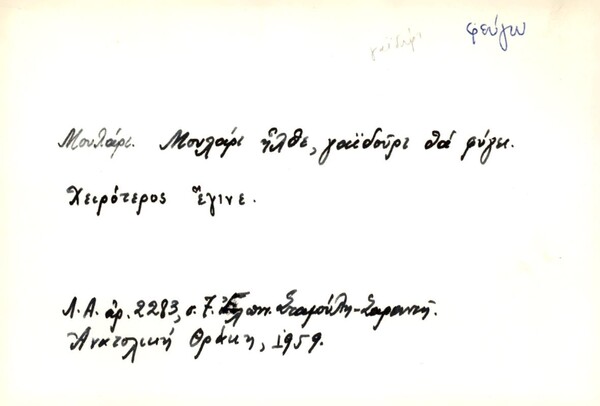 γαϊδούρι φεύγω
Μουλάρι. Μουλάρι ἦλθε, γαϊδοῦρι θά φύγει.
Χειρότερος ἔγινε.
Λ.Α. ἀρ. 2283, σ. 7. Ἐλπιν. Σταμούλη-Σαραντῆ.
Ἀνατολική Θράκη, 1959.